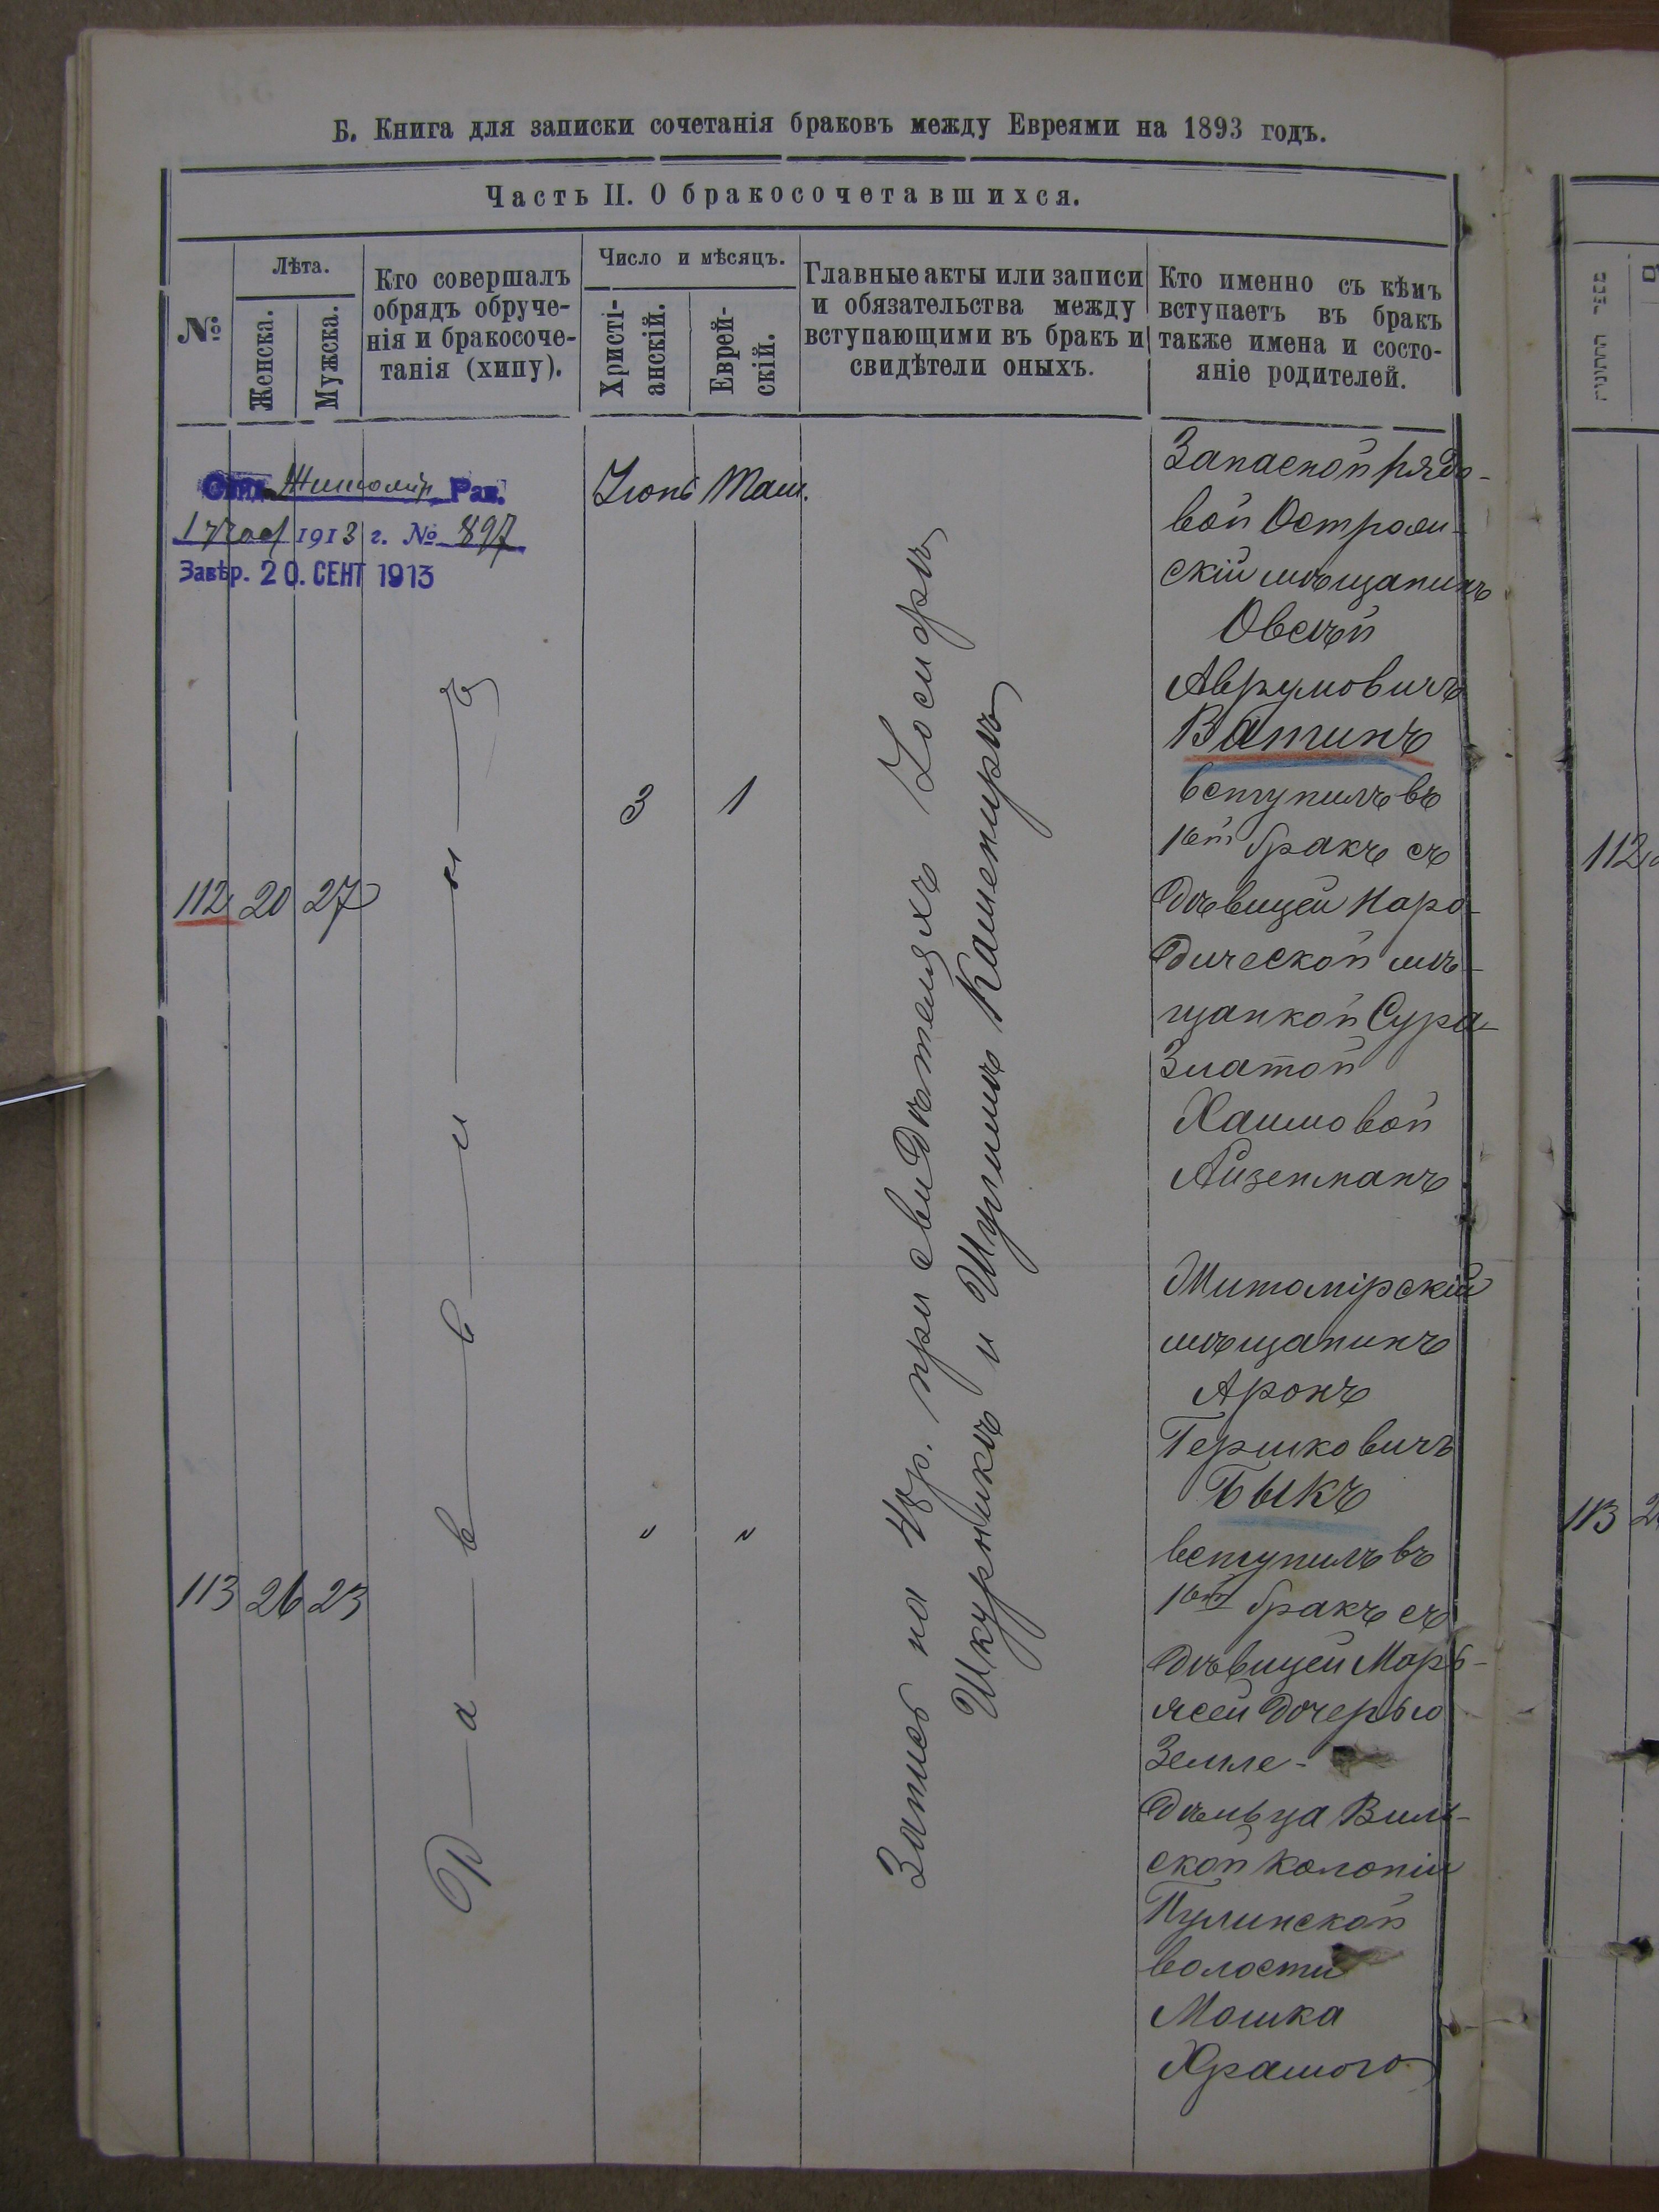 Б. Книга для записки сочетанія браковъ между Евреями на 1893 годъ.
Часть II. О бракосочетавшихся.
№
Лѣта.
Женска.
Мужска.
Кто совершалъ
обрядъ обруче-
нія и бракосоче-
танія (хипу).
Число и мѣсяцъ.
Христі-
анскій.
Еврей-
скій.
Главные акты или записи
и обязательства между
вступающими въ бракъ и
свидѣтели оныхъ.
Кто именно съ кѣмъ
вступаетъ въ бракъ
также имена и состо-
яніе родителей.
Житомір. Рав.
1913 г. № 897
Завѣр. 20. СЕНТ 1913
112 20 27
Раввинъ
Іюнь Там.
3 1
Запись на 48р. при свидѣтеляхъ Іосифъ
Шкурникъ и Шулимъ Камениръ
Запасной рядо-
вой Острожи-
скій мѣщанинъ
Овсѣй
Аврумовичъ
Ватинъ
вступилъ въ
1ый бракъ съ
дѣвицей Наро-
дической мѣ-
щанкой Сура-
Златой
Хаимовой
Айзенманъ
113 26 23
" "
Житомірскій
мѣщанинъ
Аронъ
Гершковичъ
Быкъ
вступилъ въ
1ый бракъ съ
дѣвицей Марь-
ясей дочерью
Земле-
дѣльца Виль-
ской колоніи
Пулинской
волости
Мошка
Храмого
112
113